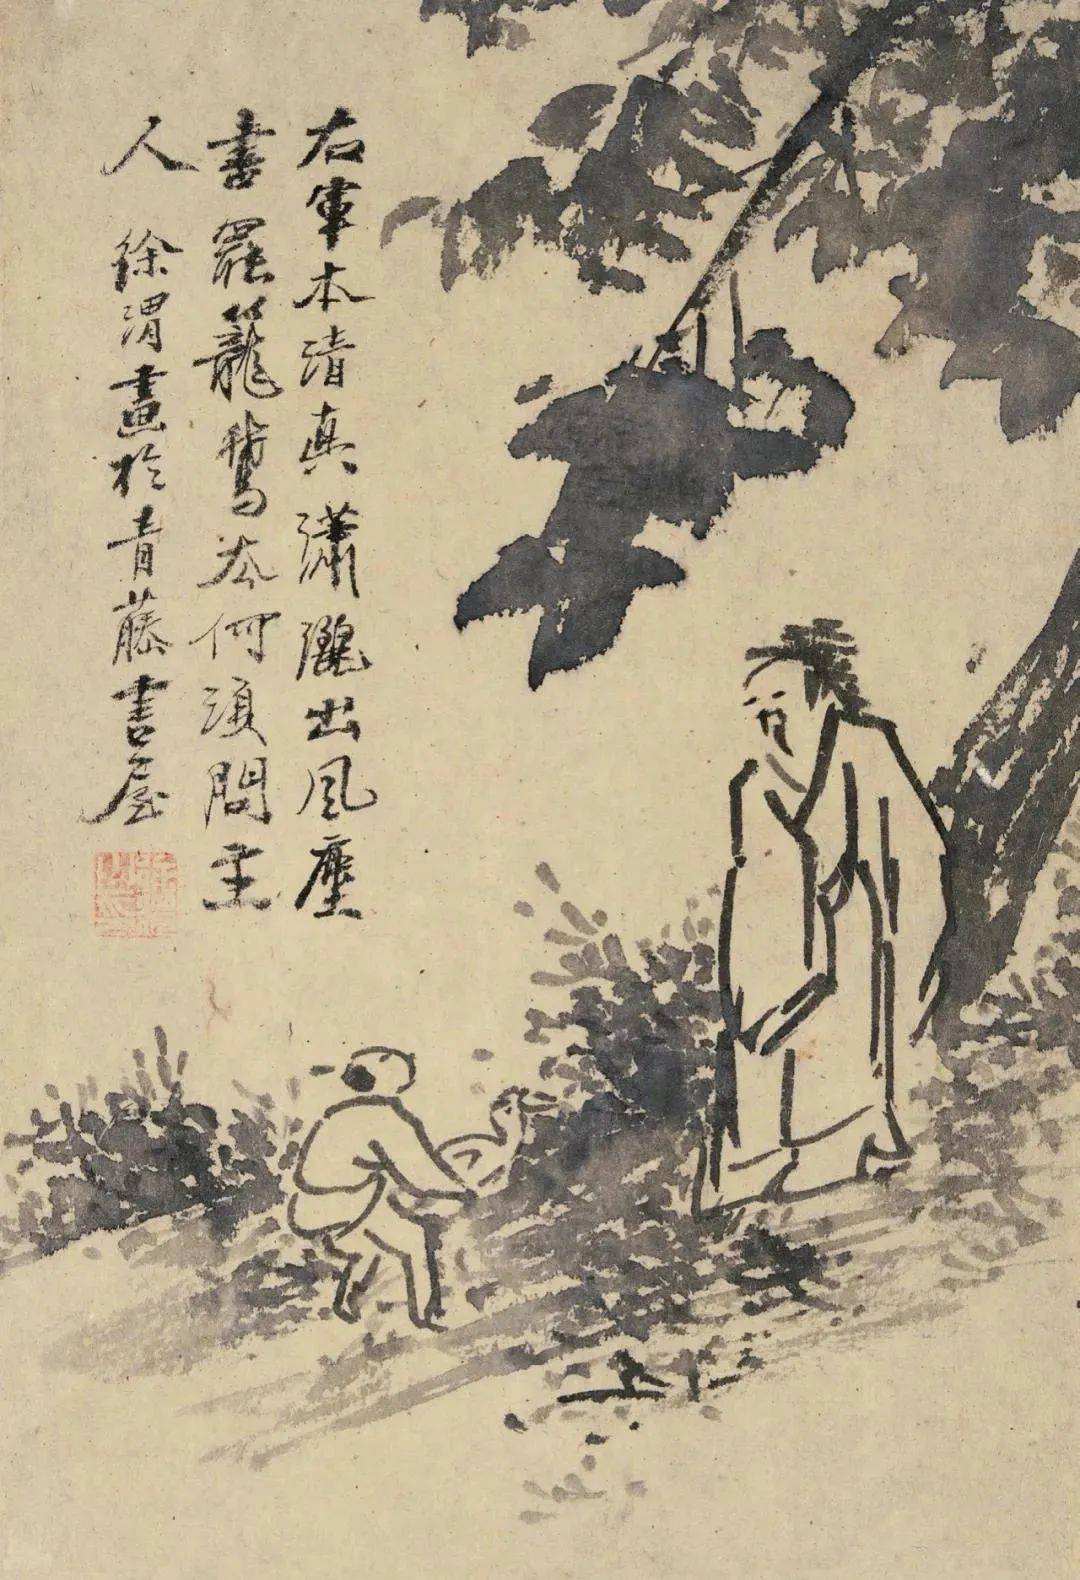 右軍本清真瀟灑出風塵
書罷籠鵞去何須問主
人　徐渭畫於青藤書屋